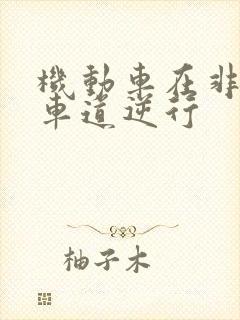 機動車在非
車道逆行
柚子木